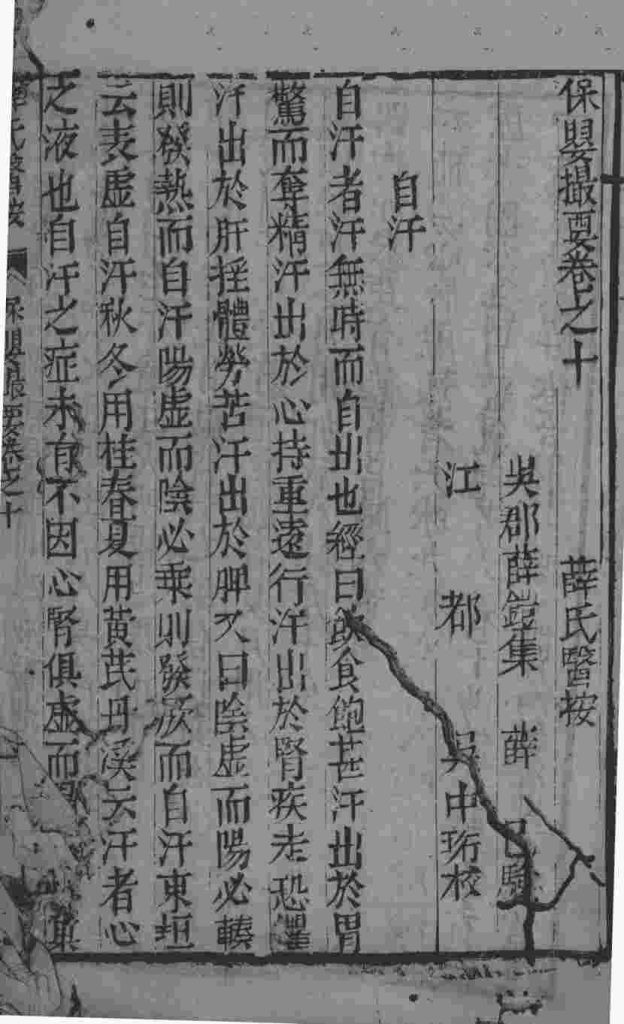 保嬰撮要卷之十 薛氏醫按
吳郡薛鎧集 薛 己
江都 吳中珩校
自汗
自汗者汗無時而自出也經曰飲食飽甚汗出於胃
驚而奪精汗出於心持重遠行汗出於腎疾走恐懼
汗出於肝揺體勞苦汗出於脾又曰陰虛而陽必輳
則發熱而自汗陽虛而陰必乘則發厥而自汗東垣
云表虛自汗秋冬用桂春夏用黃芪丹溪云汗者心
之液也自汗之症未有不因心腎俱虛而
薛氏醫按 保嬰撮要卷之十